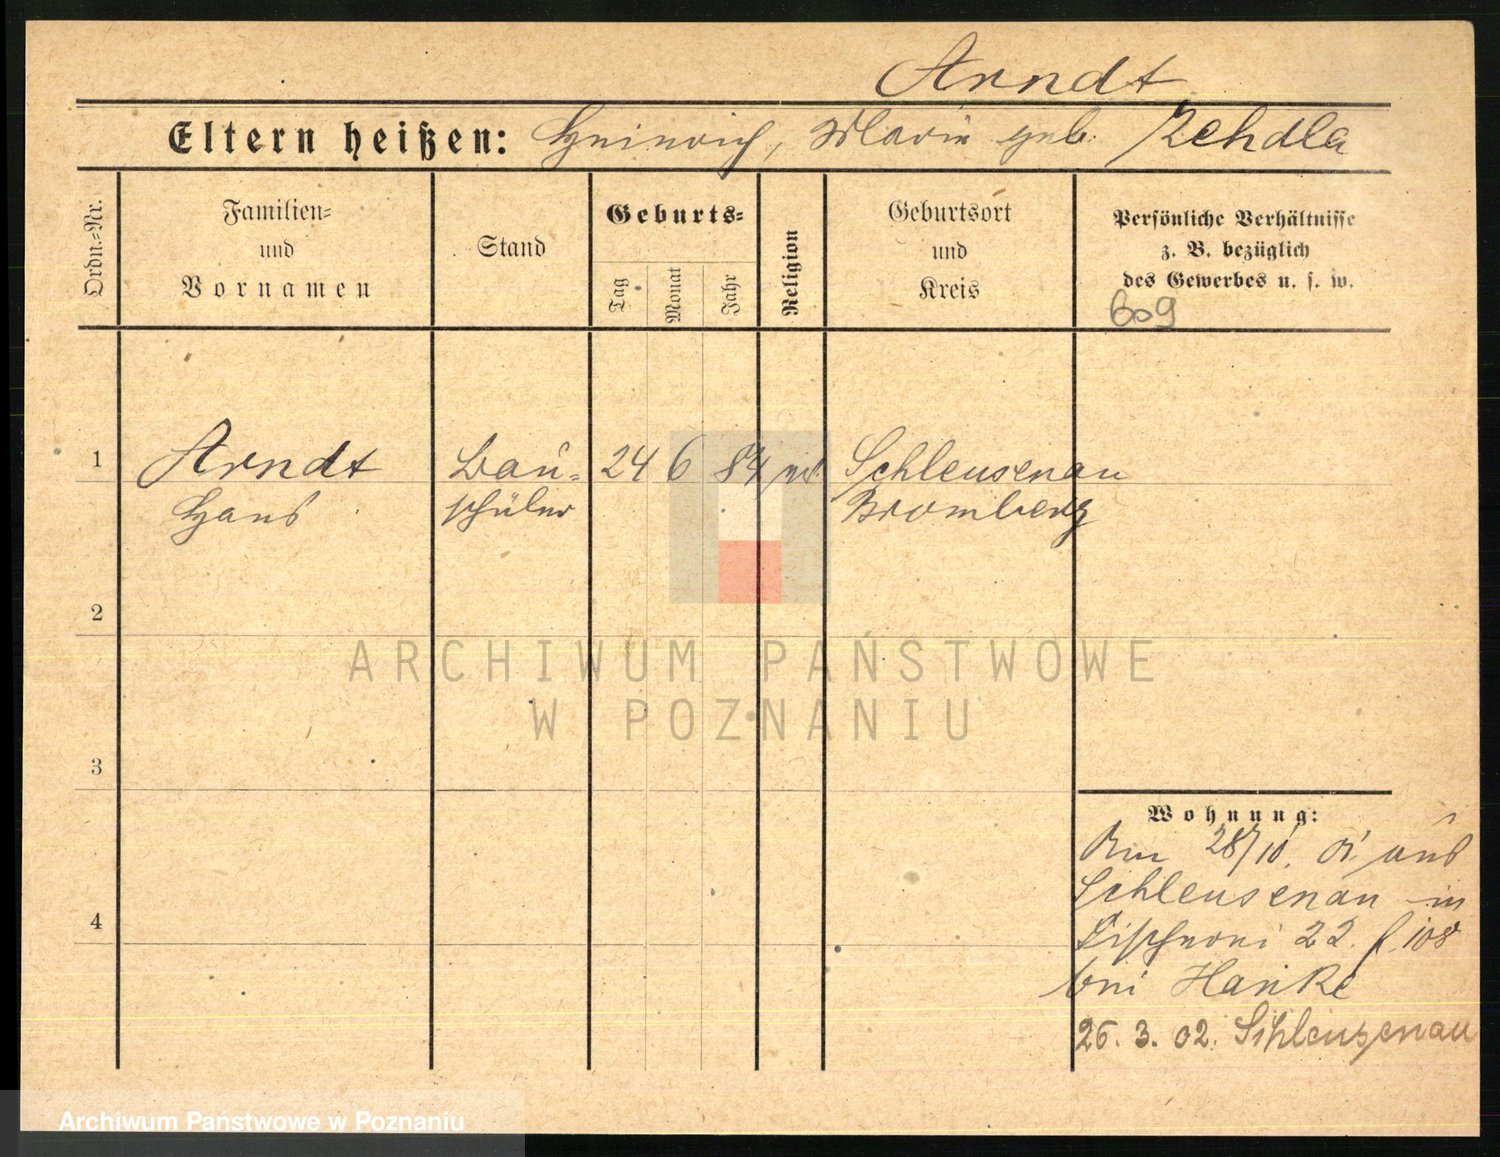 Arndt
Eltern heißen: Heinrich, Marie geb. Zehdla
Ordn.-Nr.
Familien-
und
Vornamen
Stand
Geburts-
Tag
Monat
Jahr
Religion
Geburtsort
und
Kreis
Persönliche Verhältnisse
z. B. bezüglich
des Gewerbes u. s. w.
609
1 Arndt Bau- 24 6 84 Schleusenau
Hans schüler Bromberg
2
3
4
Wohnung:
Am 28/10. 01 aus
Schleusenau in
Fischerei 22. f. 108
bei Hanke
26. 3. 02. Schleusenau
ARCHIWUM PAŃSTWOWE
W POZNANIU
Archiwum Państwowe w Poznaniu